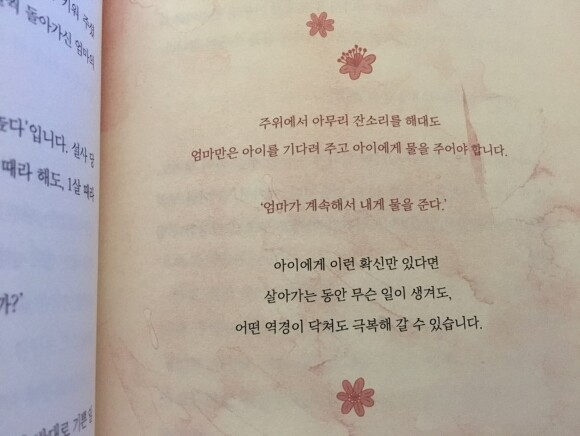 돌아가신 엄마의
'입니다. 설사 당
때라 해도, 1살 때라
까?'
주위에서 아무리 잔소리를 해대도
엄마만은 아이를 기다려 주고 아이에게 물을 주어야 합니다.
'엄마가 계속해서 내게 물을 준다.'
아이에게 이런 확신만 있다면
살아가는 동안 무슨 일이 생겨도,
어떤 역경이 닥쳐도 극복해 갈 수 있습니다.